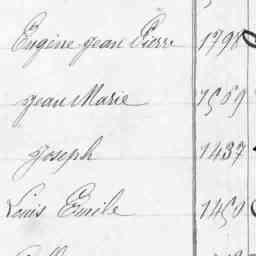 Eugène Jean Pierre 1798
Jean Marie 1569
Joseph 1437
Louis Emile 1459